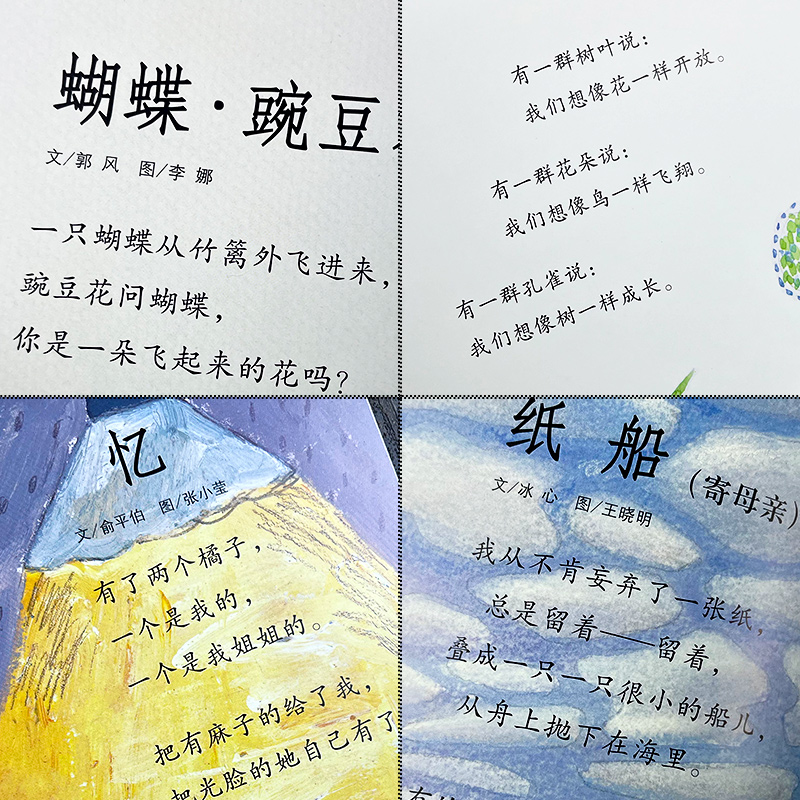 蝴蝶·豌豆
文/郭 风 图/李 娜
一只蝴蝶从竹篱外飞进来，
豌豆花问蝴蝶，
你是一朵飞起来的花吗？
有一群树叶说：
我们想像花一样开放。
有一群花朵说：
我们想像鸟一样飞翔。
有一群孔雀说：
我们想像树一样成长。
忆
文/俞平伯 图/张小莹
有了两个橘子，
一个是我的，
一个是我姐姐的。
把有麻子的给了我，
把光脸的她自己有了
纸 船（寄母亲）
文/冰 心 图/王晓明
我从不肯妄弃了一张纸，
总是留着——留着，
叠成一只一只很小的船儿，
从舟上抛下在海里。